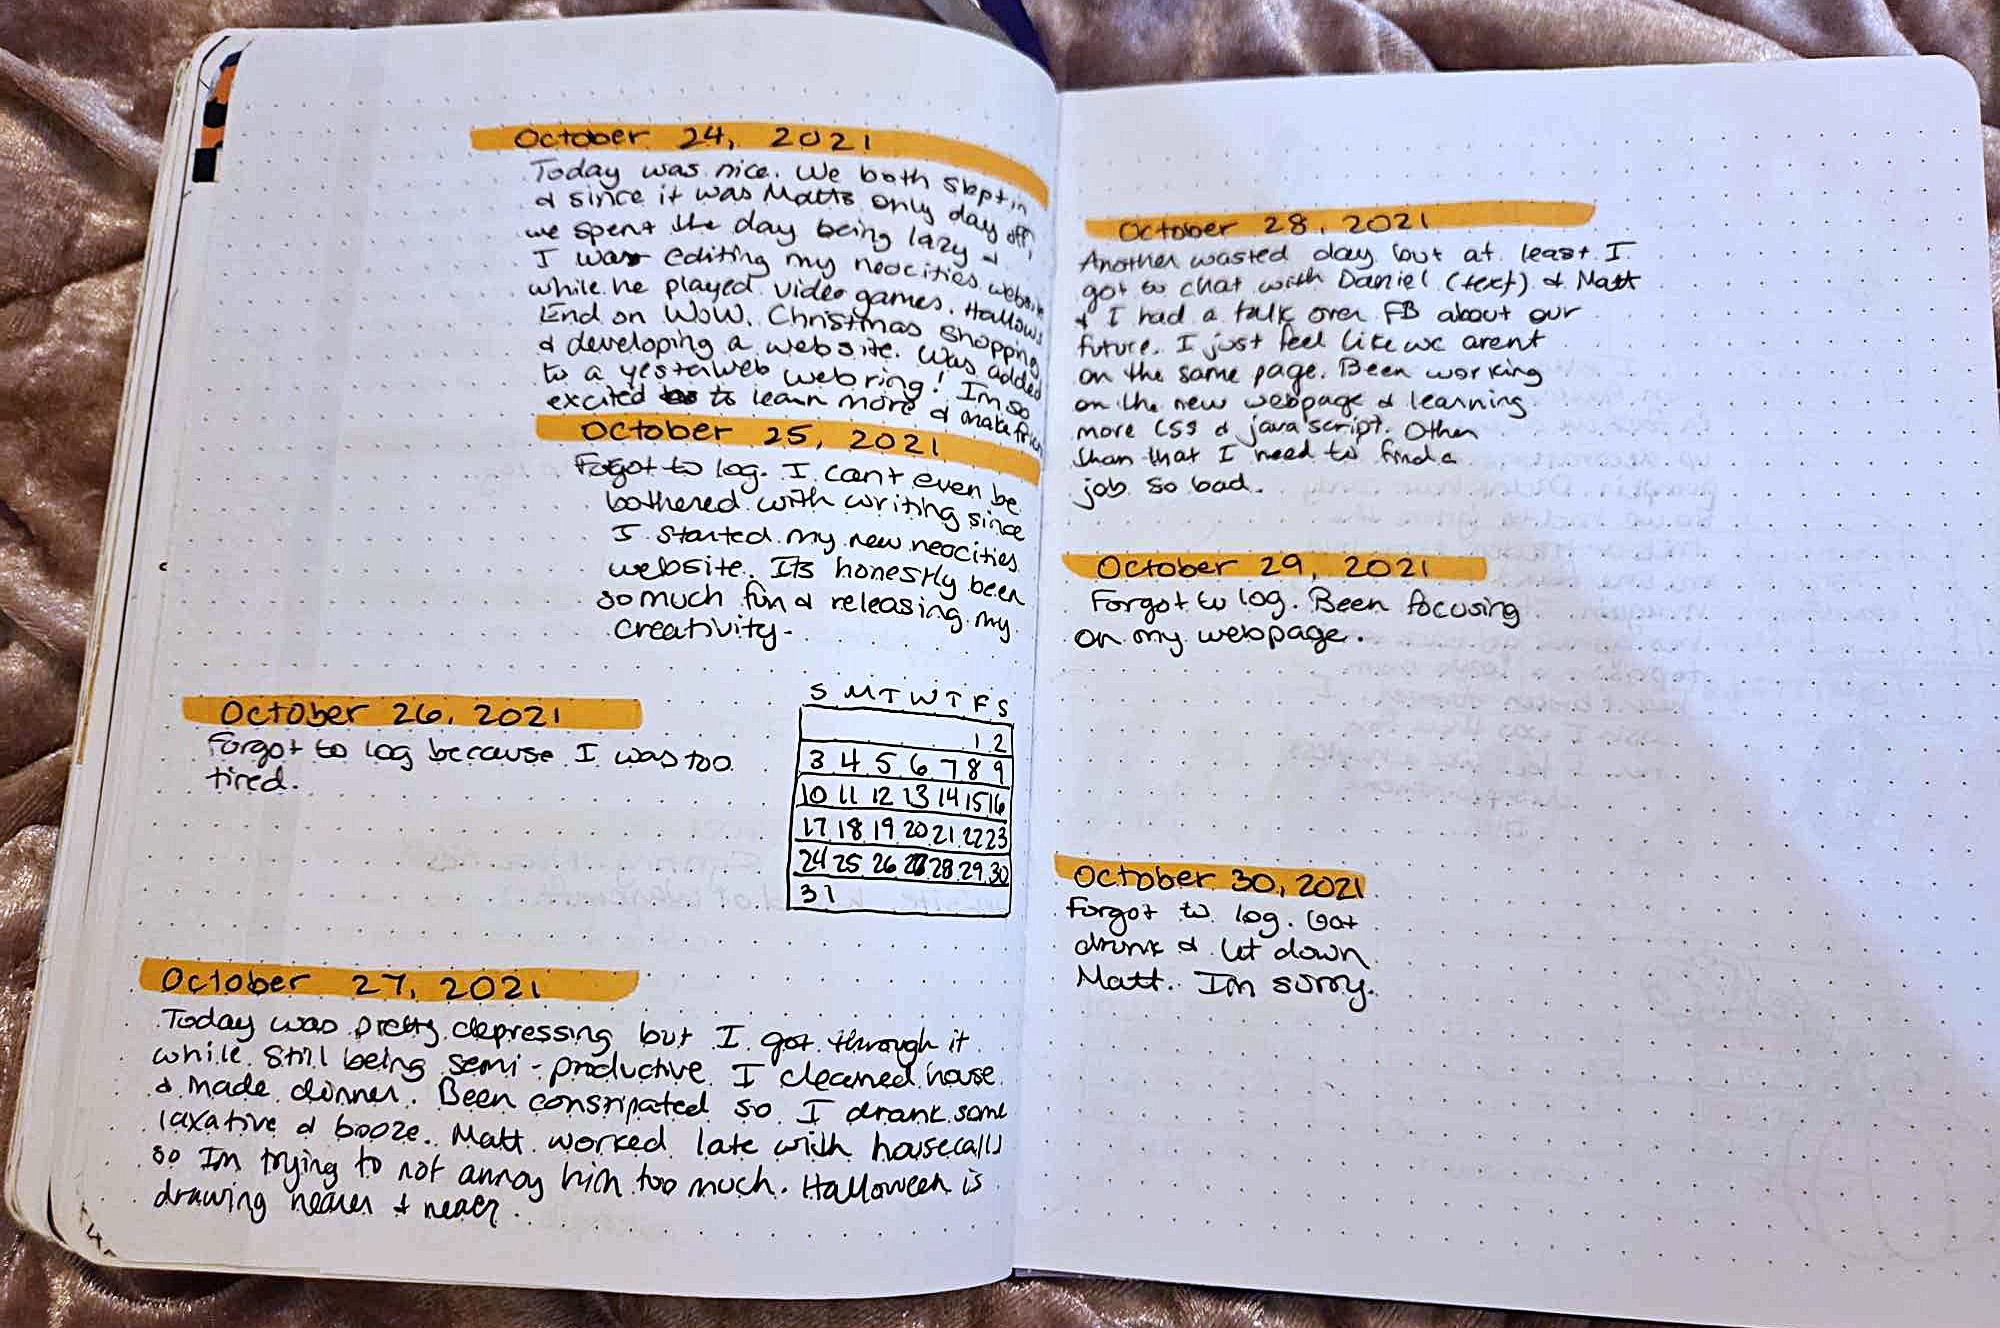 October 24, 2021
Today was nice. We both slept in
& since it was Matts only day off,
we spent the day being lazy &
I was editing my neocities website
while he played video games. Hallows
End on WoW. Christmas shopping
& developing a website. Was added
to a yesterweb webring! Im so
excited to learn more & make frien
October 25, 2021
Forgot to log. I cant even be
bothered with writing since
I started my new neocities
website. Its honestly been
so much fun & releasing my
creativity.
October 26, 2021
Forgot to log because I was too
tired.
S M T W T F S
1 2
3 4 5 6 7 8 9
10 11 12 13 14 15 16
17 18 19 20 21 22 23
24 25 26 27 28 29 30
31
October 27, 2021
Today was pretty depressing but I got through it
while still being semi-productive. I cleaned house
& made dinner. Been constipated so I drank some
laxative & booze. Matt worked late with housecalls
so Im trying to not annoy him too much. Halloween is
drawing nearer & nearer.
October 28, 2021
Another wasted day but at least I
got to chat with Daniel (text) & Matt
& I had a talk over FB about our
future. I just feel like we arent
on the same page. Been working
on the new webpage & learning
more CSS & javascript. Other
than that I need to find a
job so bad.
October 29, 2021
Forgot to log. Been focusing
on my webpage.
October 30, 2021
Forgot to log. Got
drunk & let down
Matt. Im sorry.